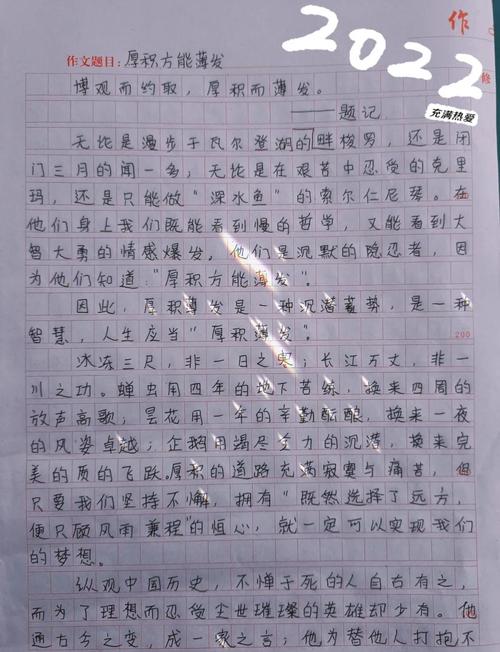 作
2022
修
作文题目：厚积方能薄发
充满热爱
博观而约取，厚积而薄发。
——题记
无论是漫步于瓦尔登湖的畔梭罗，还是闭
门三月的闻一多，无论是在艰苦中忍受的克里
玛，还是只能做“深水鱼”的索尔仁尼琴。在
他们身上我们既能看到慢的哲学，又能看到大
智大勇的情感爆发，他们是沉默的隐忍者，因
为他们知道“厚积方能薄发”。
因此，厚积薄发是一种沉潜蓄势，是一种
智慧，人生应当“厚积薄发”。
200
冰冻三尺，非一日之寒；长江万丈，非一
川之功。蝉虫用四年的地下苦练，换来四周的
放声高歌；昙花用一年的辛勤酝酿，换来一夜
的风姿卓越；企鹅用竭尽全力的沉潜，换来完
美的质的飞跃。厚积的道路充满寂寞与痛苦，但
只要我们坚持不懈，拥有“既然选择了远方，
便只顾风雨兼程”的恒心，就一定可以实现我们
的梦想。
纵观中国历史，不惮于死的人自古有之，
而为了理想而忍受尘世璀璨的英雄却少有。他
通古今之变，成一家之言；他为替他人打抱不